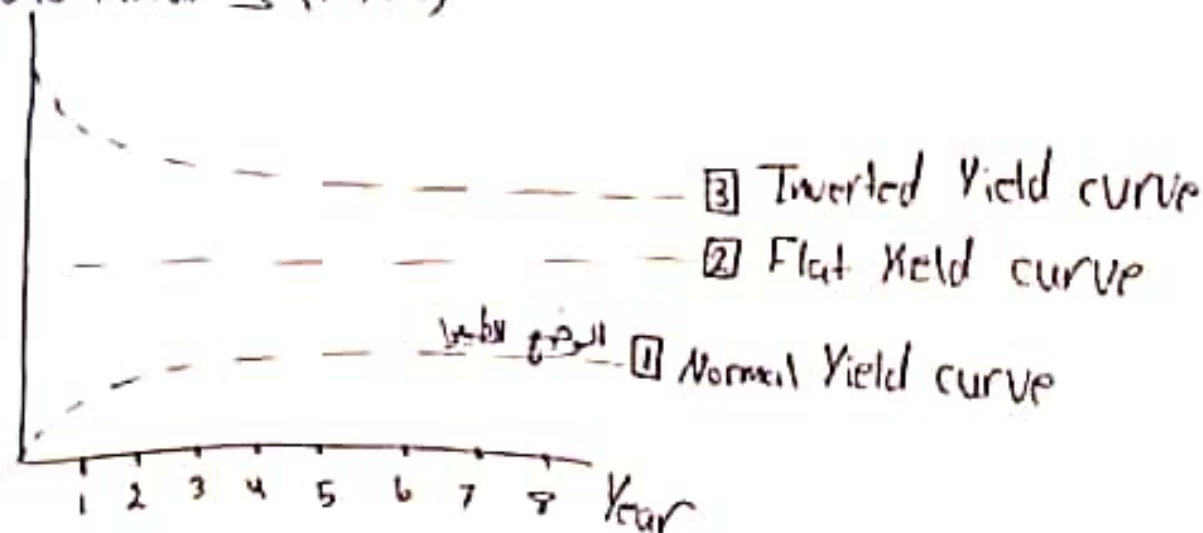 3 Inverted Yield curve
2 Flat Yield curve
الوضع الطبيعي
1 Normal Yield curve
1 2 3 4 5 6 7 8 Year